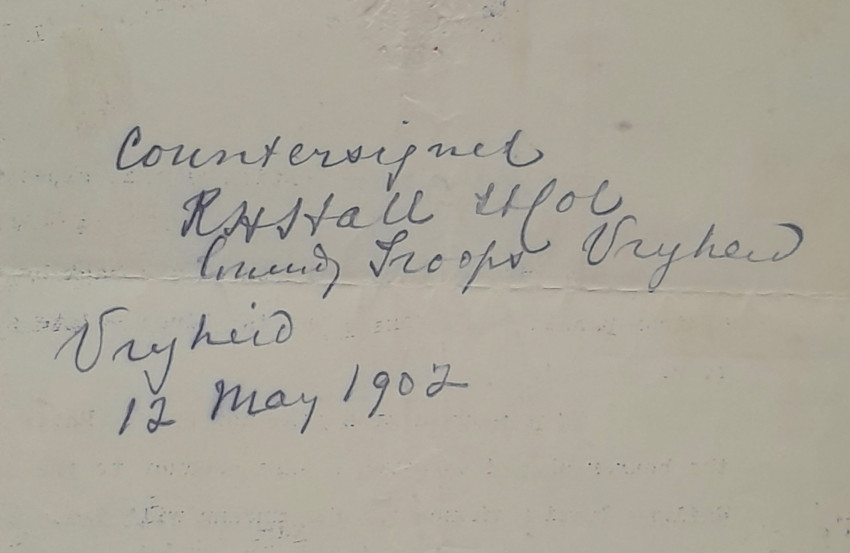 Countersigned
RHSHall Lt Col
Commdg Troops Vryheid
Vryheid
12 May 1902